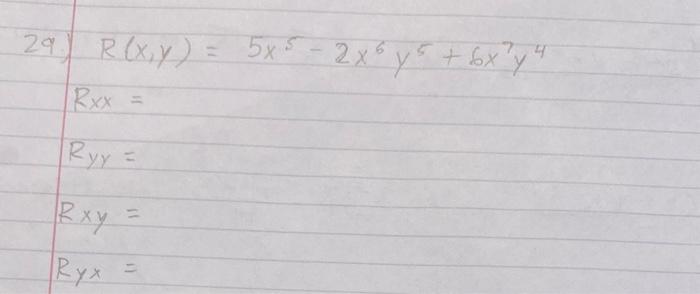 29.) R(x,y) = 5x⁵ - 2x⁶y⁵ + 6x⁷y⁴
Rxx =
Ryy =
Rxy =
Ryx =